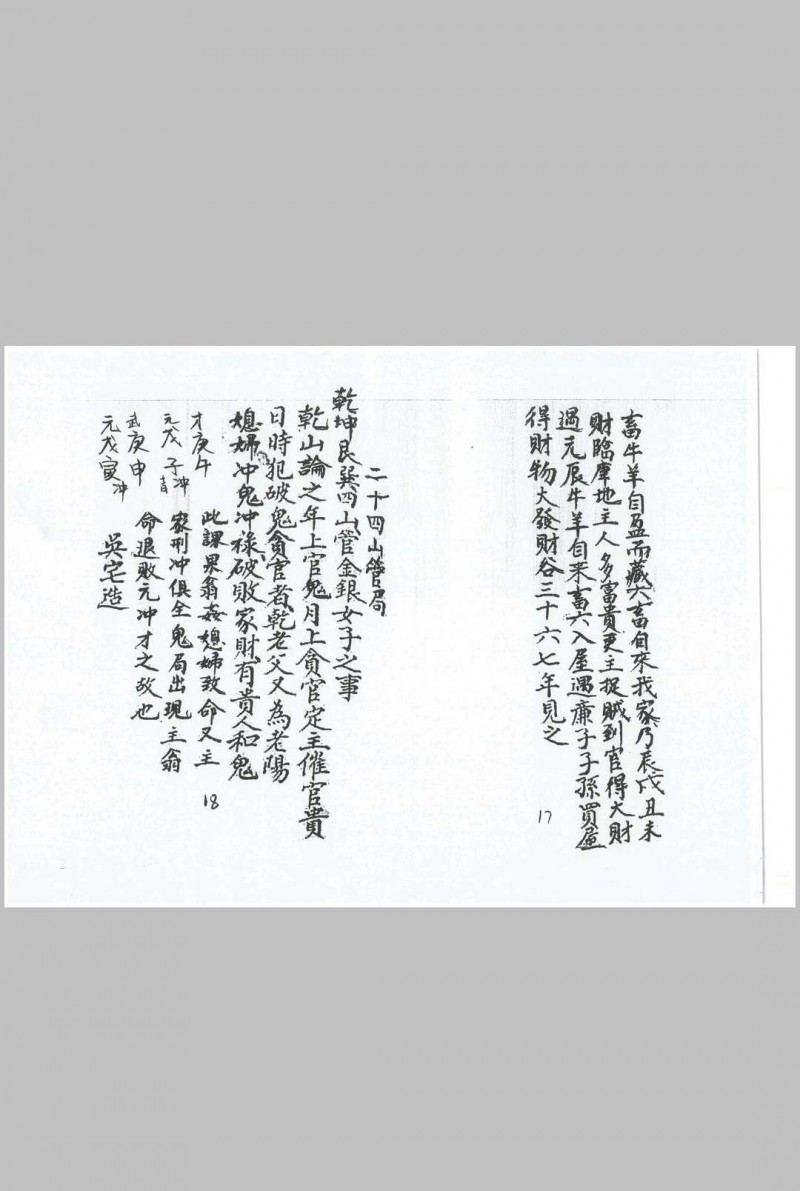 畜牛羊自盈而藏六畜自來我家乃辰戌丑未
財臨庫地主人多富貴更主捉賊到官得大財
遇元辰牛羊自來畜六入屋遇廉子子孫買屋
得財物大發財谷三十六七年見之
17
二十四山管局
乾坤艮巽四山管金銀女子之事
乾山論之年上官鬼月上貪官定主催官貴
日時犯破鬼貪官者乾老父又為老陽
媳婦冲鬼冲祿破敗家財有貴人和鬼
才庚午
元戊子冲
武庚申
元戊寅冲
此課果翁姦媳婦致命又主
家刑冲俱全鬼局出現主翁
命退敗元冲才之故也
吳宅造
18